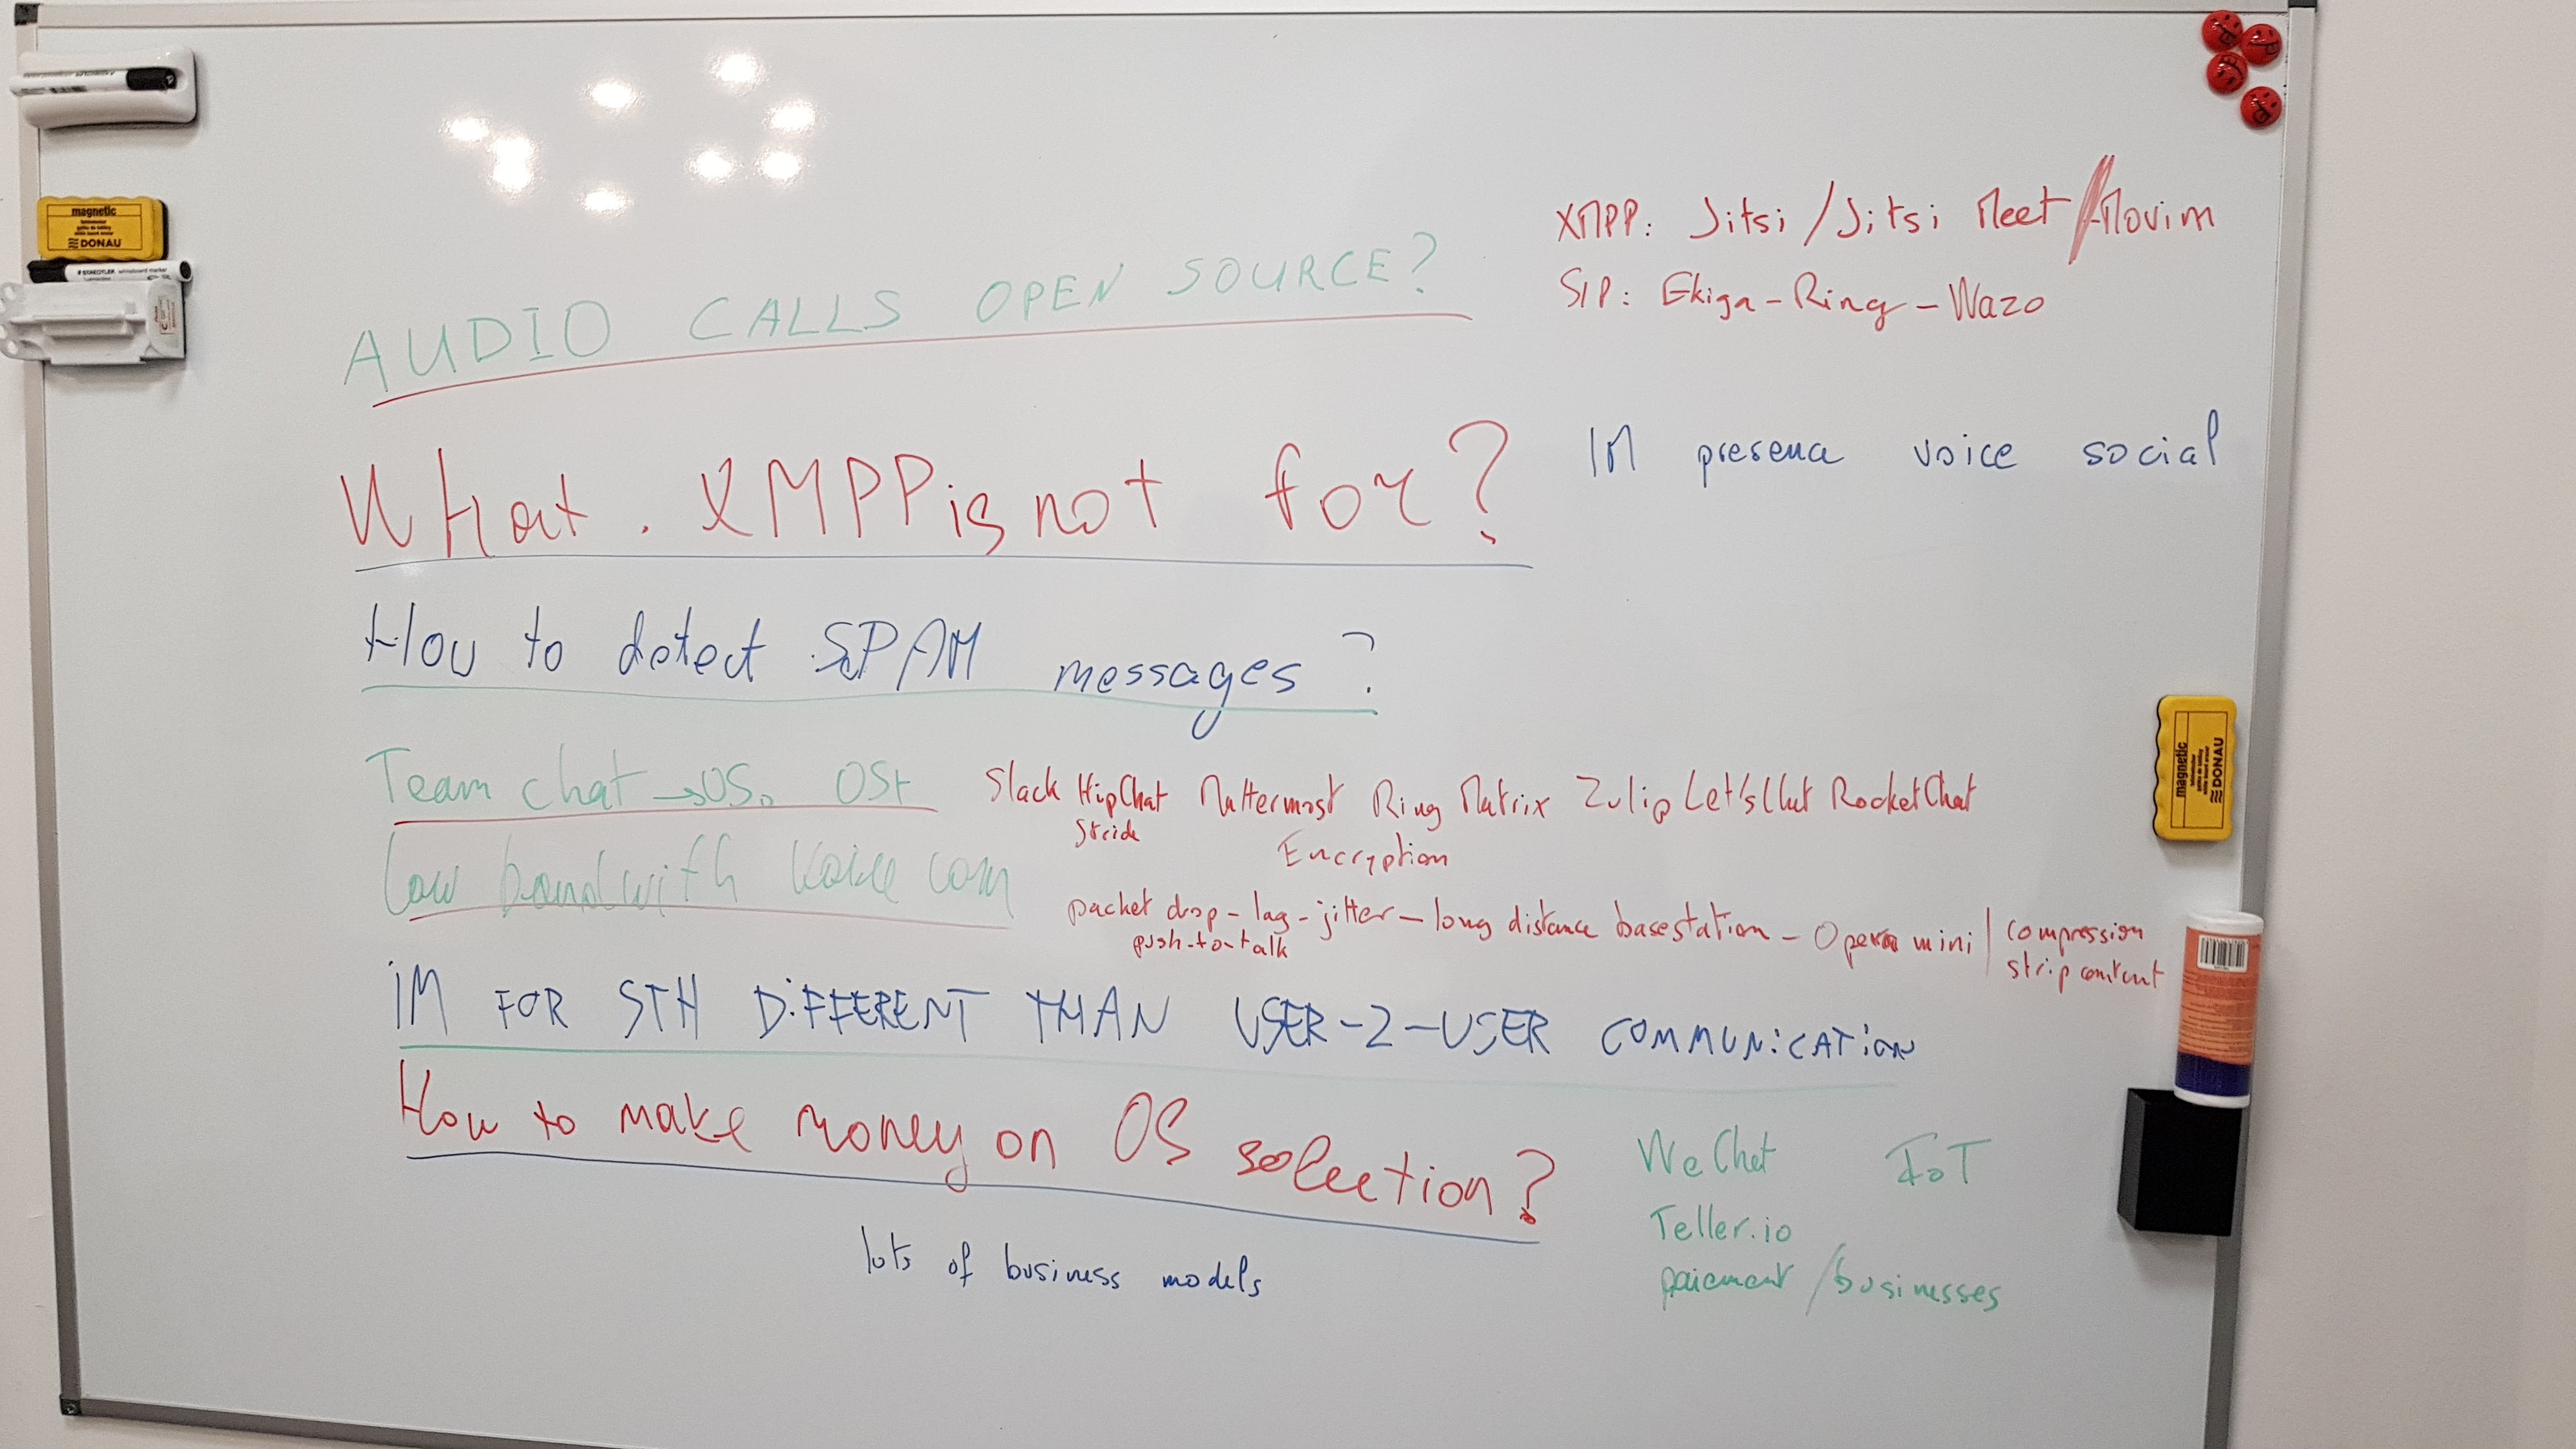 magnetic
DONAU
STAEDTLER
XMPP: Jitsi / Jitsi Meet / Movim
SIP: Ekiga - Ring - Wazo
AUDIO CALLS OPEN SOURCE?
What XMPP is not for?
IM presence voice social
How to detect SPAM messages?
Team chat → OS
Slack HipChat Mattermost Ring Matrix Zulip Let'sChat RocketChat
Stride
Encryption
Low bandwith Voice com
packet drop - lag - jitter - long distance basestation - Opera mini | compression
push-to-talk
strip content
IM FOR STH DIFFERENT THAN USER-2-USER COMMUNICATION
How to make money on OS solection?
WeChat IoT
Teller.io
paiement / businesses
lots of business models
magnetic
DONAU